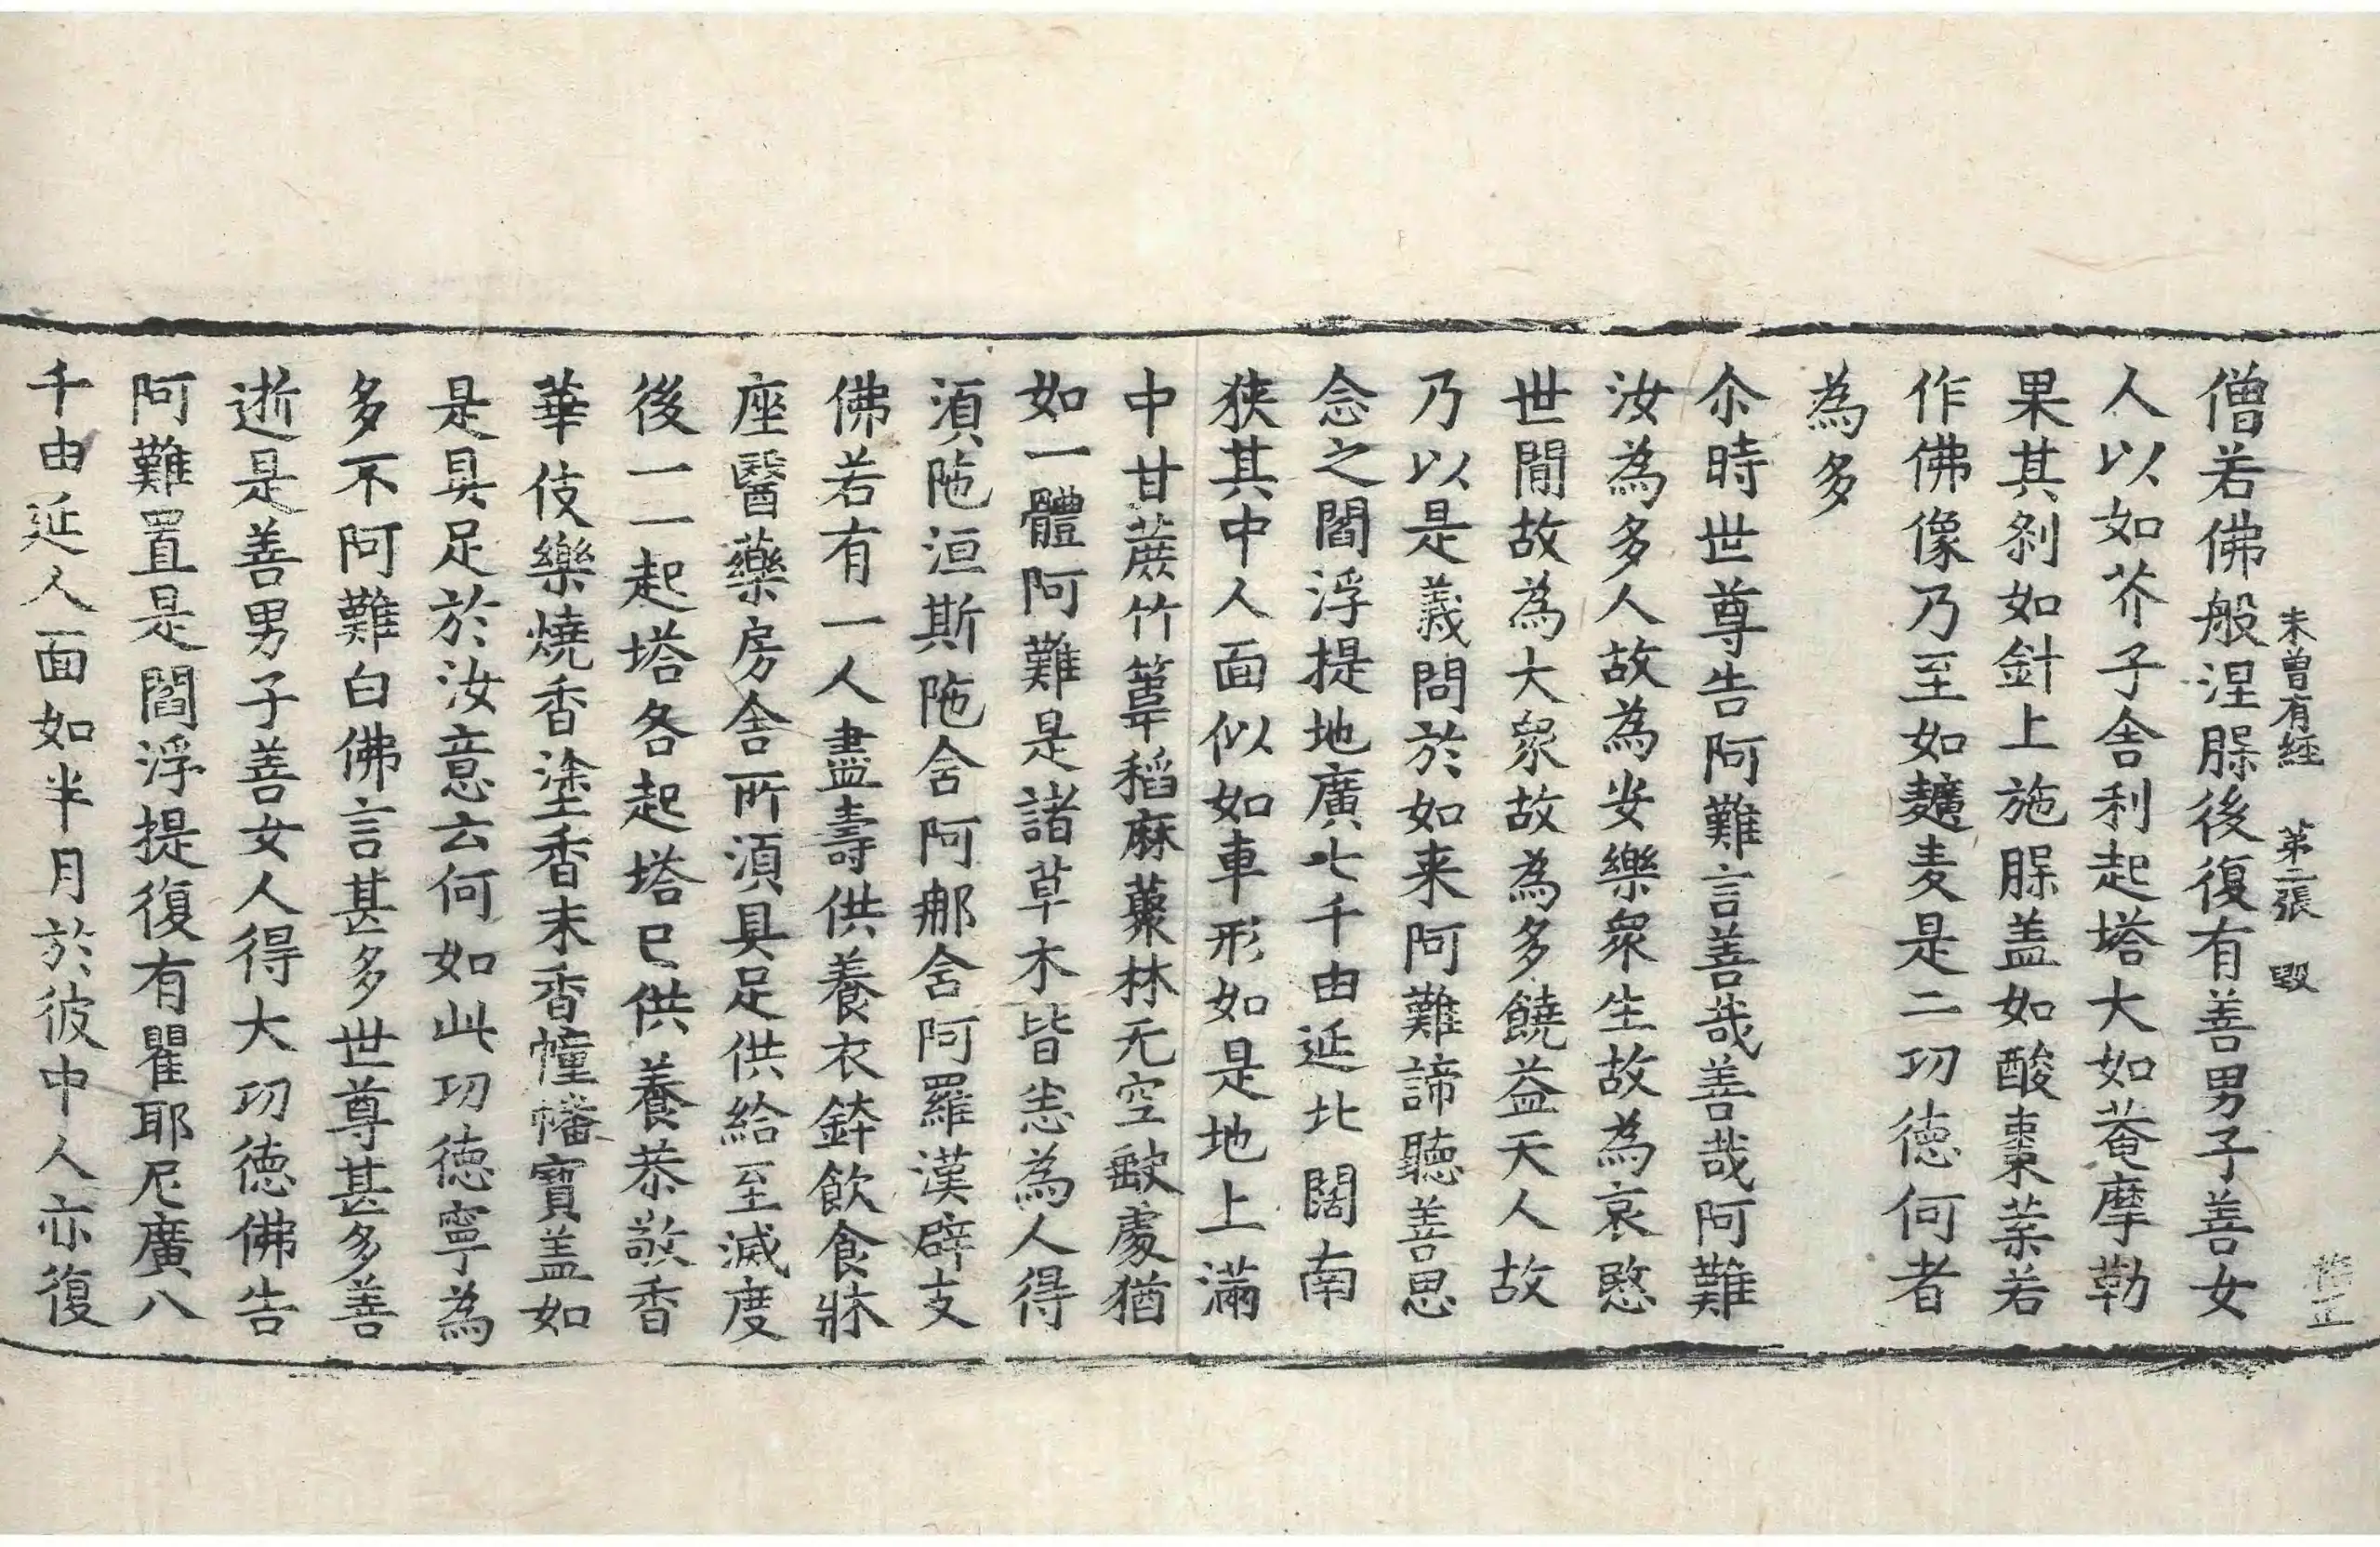 未曾有經 第二張 毀
僧若佛般涅腂後復有善男子善女
人以如芥子舍利起塔大如菴摩勒
果其刹如針上施腂盖如酸棗葉若
作佛像乃至如𪍿麦是二功德何者
為多
尒時世尊告阿難言善哉善哉阿難
汝為多人故為安樂衆生故為哀愍
世間故為大衆故為多饒益天人故
乃以是義問於如来阿難諦聽善思
念之閻浮提地廣七千由延北闊南
狭其中人面似如車形如是地上滿
中甘蔗竹葦稻麻藂林无空缺處猶
如一體阿難是諸草木皆悉為人得
須陁洹斯陁含阿那含阿羅漢辟支
佛若有一人盡壽供養衣鉢飲食牀
座醫藥房舍所須具足供給至滅度
後一一起塔各起塔已供養恭敬香
華伎樂燒香塗香末香幢幡寶盖如
是具足於汝意云何如此功德寧為
多不阿難白佛言甚多世尊甚多善
逝是善男子善女人得大功德佛告
阿難置是閻浮提復有瞿耶尼廣八
千由延人面如半月於彼中人亦復